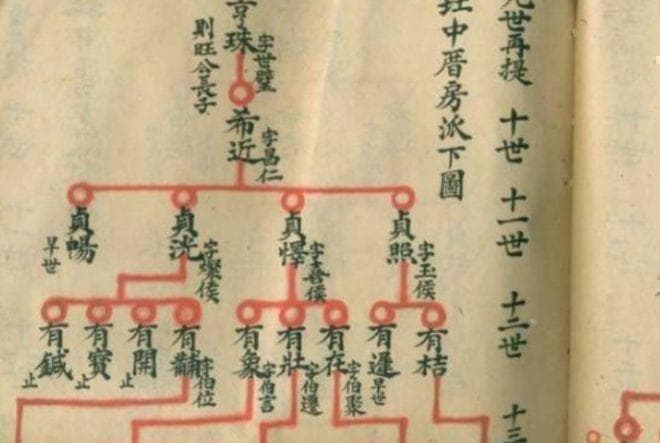 世再提 十世 十一世 十二世 十三
中厝房派下圖
亨珠 字世璧 則旺公長子
希近 字昌仁
貞照 字玉侯
貞懌 字喜侯
貞洸 字燦侯
貞暢 早世
有桔
有遲 早世
有在 字伯聚
有壯 字伯還
有象 字伯言
字伯位
有開 止
有寶 止
有鍼 止